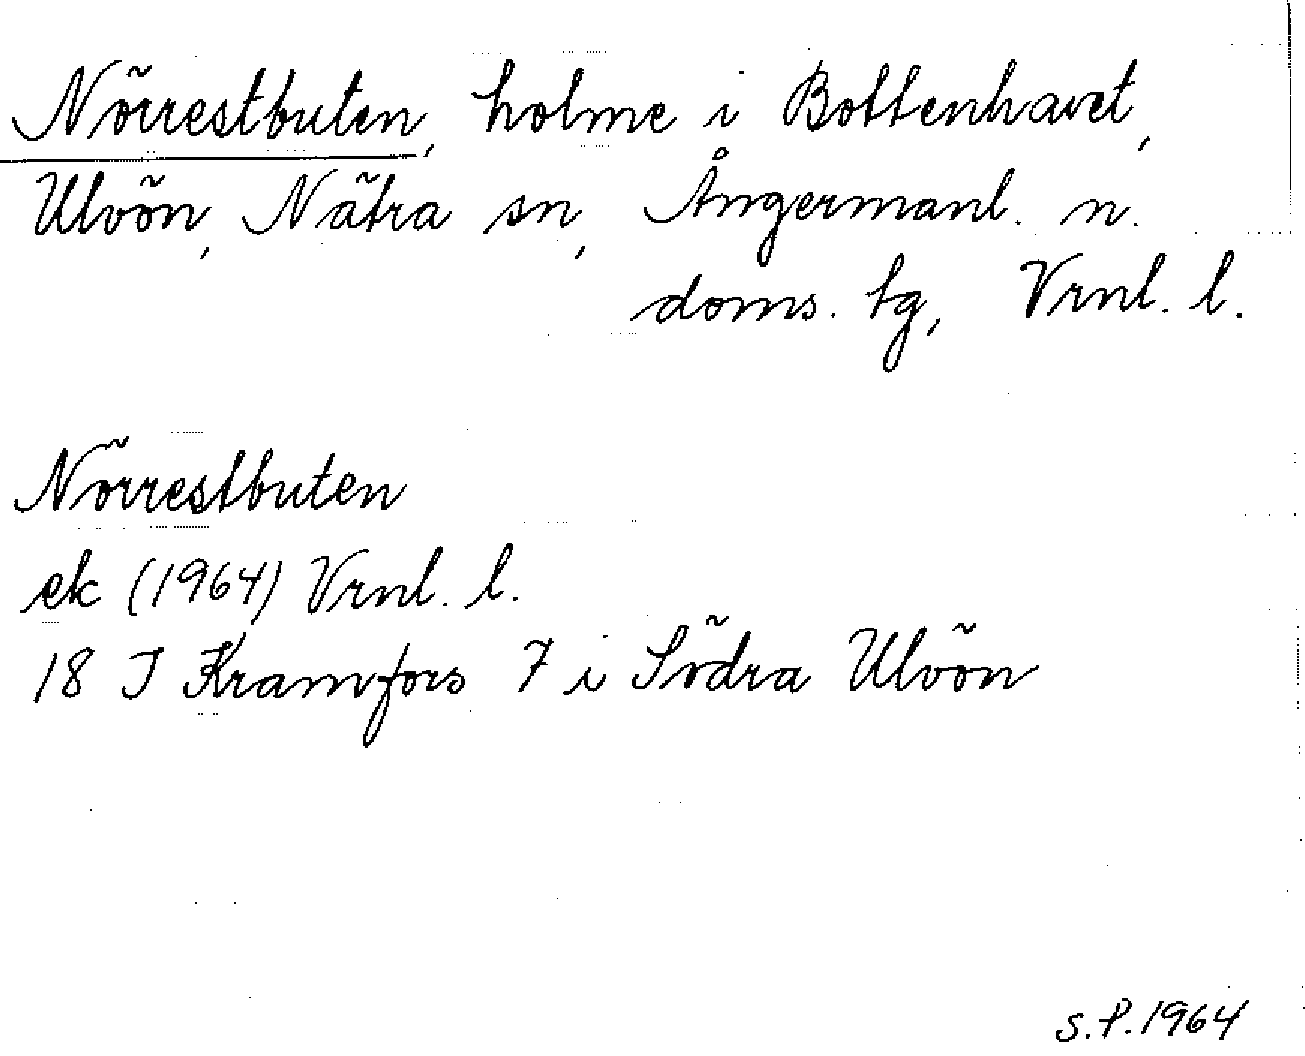 Nörrestbuten, holme i Bottenhavet,
Ulvön, Nätra sn, Ångermanl. n.
doms. tg, Vrnl. l.
Nörrestbuten
ek (1964) Vrnl. l.
18 I Kramfors 7 i Södra Ulvön
S.P. 1964